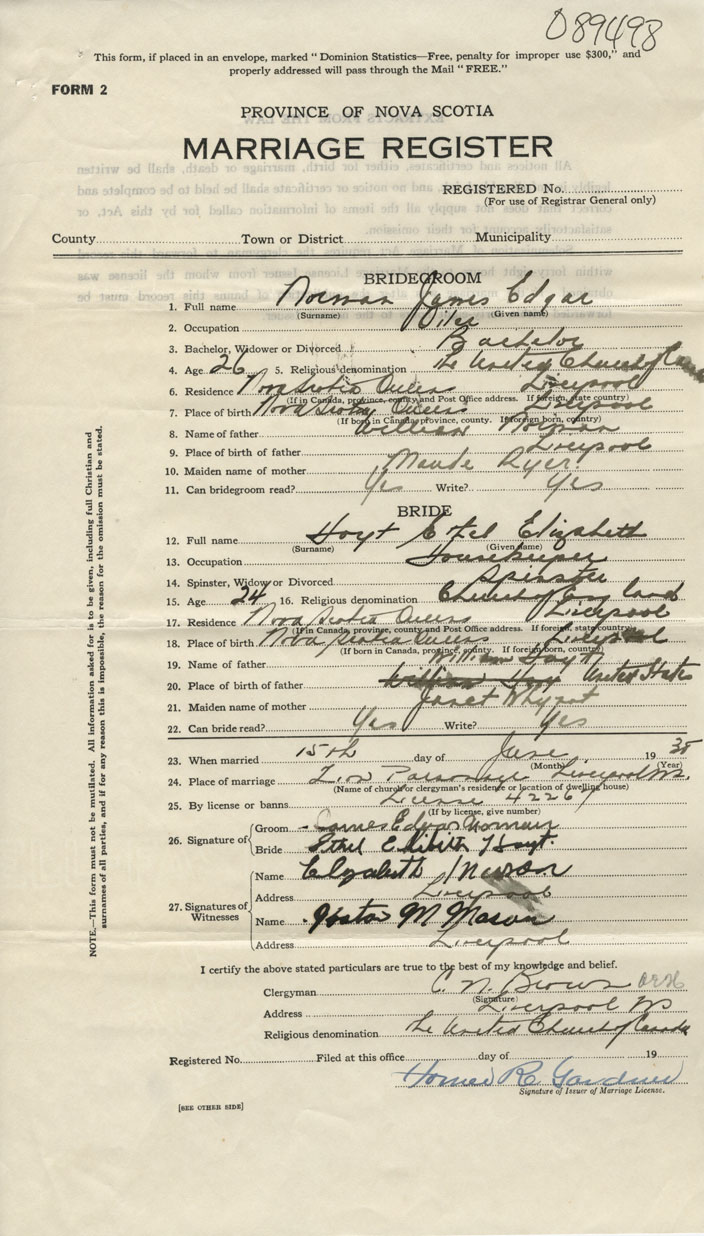 089498
This form, if placed in an envelope, marked "Dominion Statistics—Free, penalty for improper use $300," and
properly addressed will pass through the Mail "FREE."
FORM 2
PROVINCE OF NOVA SCOTIA
MARRIAGE REGISTER
REGISTERED No.
(For use of Registrar General only)
County Town or District Municipality
BRIDEGROOM
1. Full name Norman James Edgar
(Surname) (Given name)
2. Occupation
3. Bachelor, Widower or Divorced Bachelor
4. Age 26 5. Religious denomination The United Church of Canada
6. Residence Nova Scotia Queens Liverpool
(If in Canada, province, county and Post Office address. If foreign, state country)
7. Place of birth Nova Scotia Queens Liverpool
(If born in Canada, province, county. If foreign born, country)
8. Name of father William Norman
9. Place of birth of father Liverpool
10. Maiden name of mother Maude
11. Can bridegroom read? Yes Write? Yes
BRIDE
12. Full name Hoyt Ethel Elizabeth
(Surname) (Given name)
13. Occupation Housekeeper
14. Spinster, Widow or Divorced Spinster
15. Age 24 16. Religious denomination Church of England
17. Residence Nova Scotia Queens Liverpool
(If in Canada, province, county and Post Office address. If foreign, state country)
18. Place of birth Nova Scotia Queens Liverpool
(If born in Canada, province, county. If foreign born, country)
19. Name of father William Hoyt
20. Place of birth of father United States
21. Maiden name of mother Janet Whynot
22. Can bride read? Yes Write? Yes
23. When married 15th day of June 19
(Month) (Year)
24. Place of marriage Zion Parsonage Liverpool N.S.
(Name of church or clergyman's residence or location of dwelling house)
25. By license or banns License 42267
(If by license, give number)
26. Signature of Groom James Edgar Norman
Bride Ethel Hoyt.
27. Signatures of Witnesses Name Elizabeth
Address Liverpool
Name M Mason
Address Liverpool
I certify the above stated particulars are true to the best of my knowledge and belief.
Clergyman C. N. Brown
(Signature)
Address Liverpool NS
Religious denomination The United Church of Canada
Registered No. Filed at this office day of 19
Homer R. Gardner
Signature of Issuer of Marriage License.
[SEE OTHER SIDE]
NOTE.—This form must not be mutilated. All information asked for is to be given, including full Christian and
surnames of all parties, and if for any reason this is impossible, the reason for the omission must be stated.